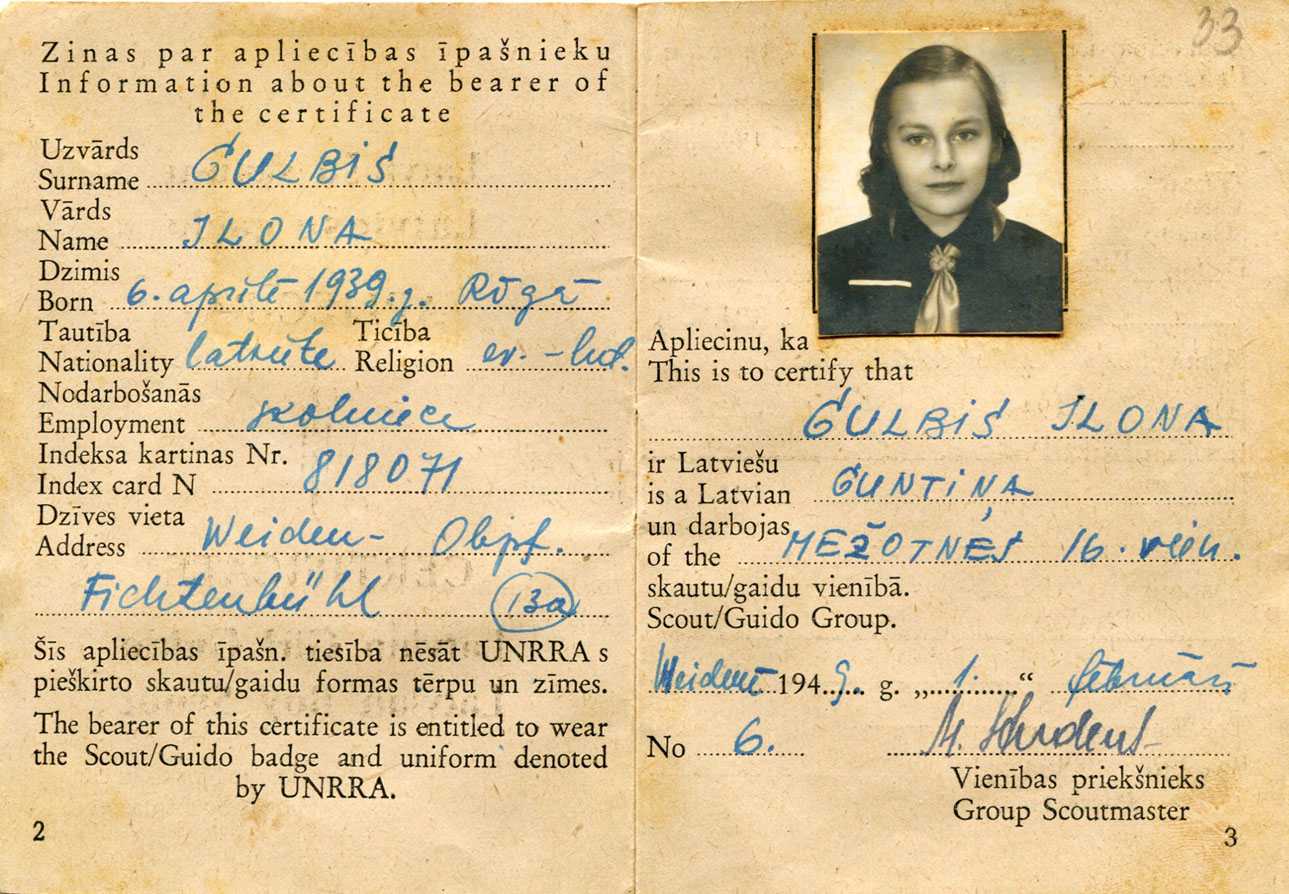 Zinas par apliecības īpašnieku
Information about the bearer of
the certificate
Uzvārds
Surname GULBIS
Vārds
Name ILONA
Dzimis
Born 6. aprīlī 1939.g. Rīgā
Tautība Ticība
Nationality latviete Religion ev. - lut.
Nodarbošanās
Employment skolniece
Indeksa kartinas Nr.
Index card N 818071
Dzīves vieta
Address Weiden- Obpf.
Fichtenbühl 13a
Šīs apliecības īpašn. tiesība nēsāt UNRRA s
pieškirto skautu/gaidu formas tērpu un zīmes.
The bearer of this certificate is entitled to wear
the Scout/Guido badge and uniform denoted
by UNRRA.
2
33
Apliecinu, ka
This is to certify that
GULBIS ILONA
ir Latviešu
is a Latvian GUNTIŅA
un darbojas
of the MEŽOTNES 16. vien.
skautu/gaidu vienībā.
Scout/Guido Group.
Weidenē 1949. g. „1.“ februārī
No 6.
Vienības priekšnieks
Group Scoutmaster
3